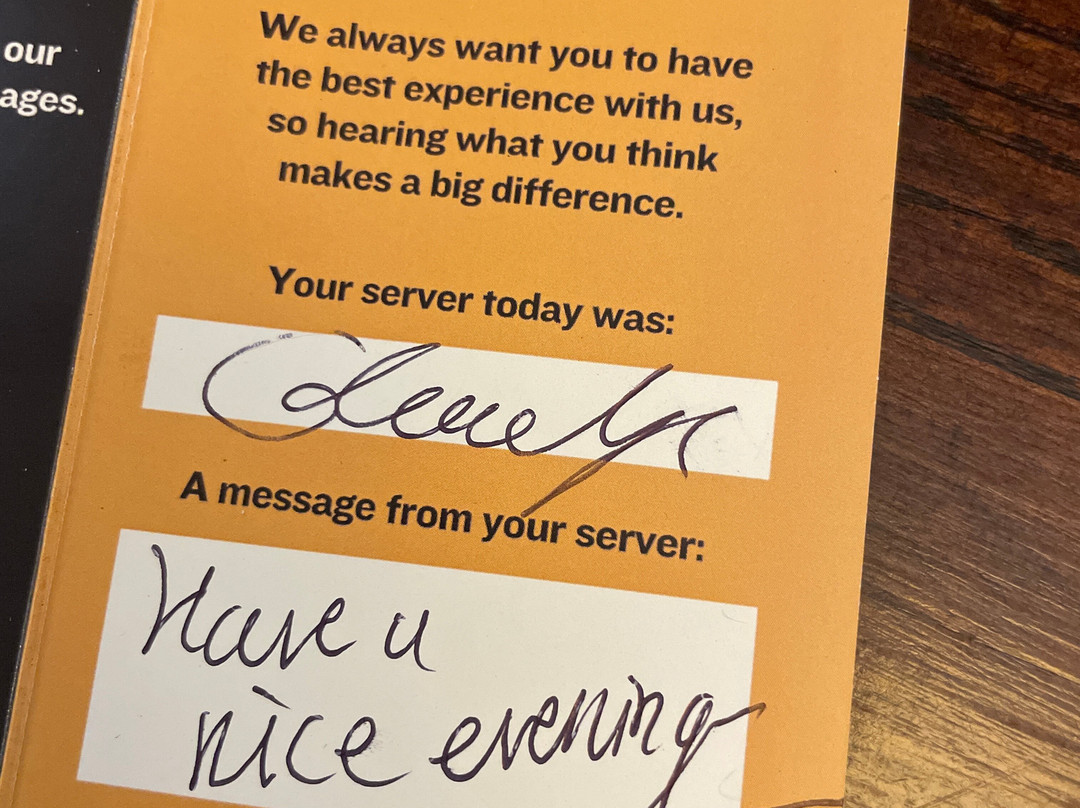 our
ages.
We always want you to have
the best experience with us,
so hearing what you think
makes a big difference.
Your server today was:
A message from your server:
Have a
nice evening